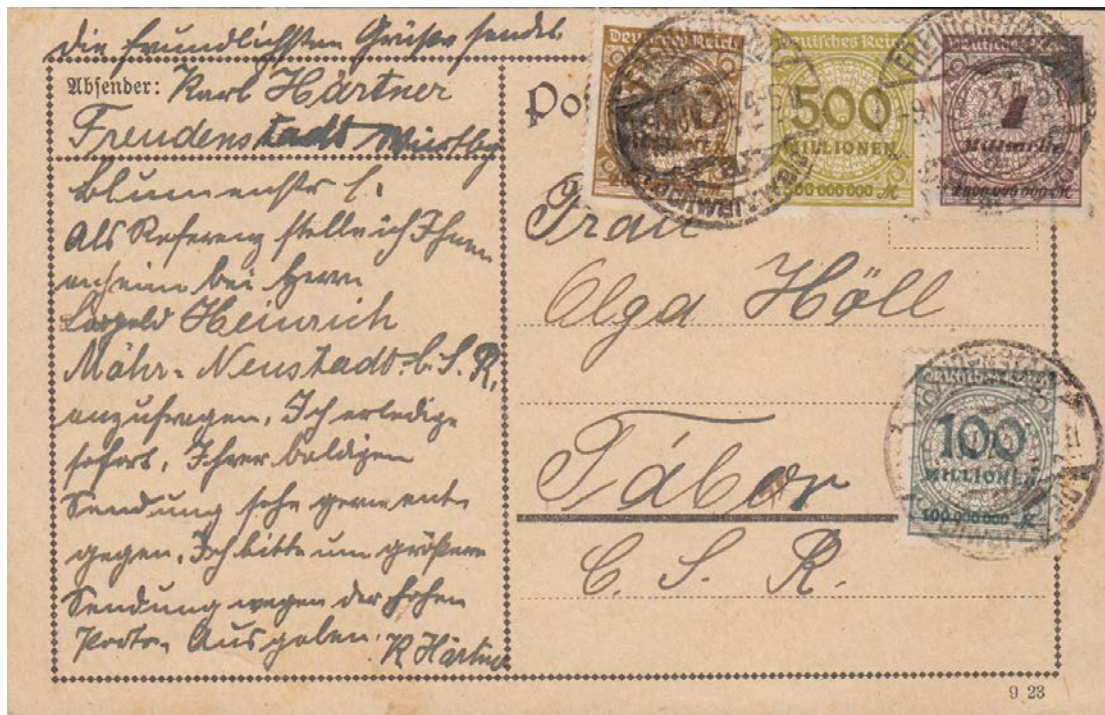 Die freundlichsten Grüße sendet
Absender: Karl Härtner
Freudenstadt Württbg
Blumenstr
Als Referenz stelle ich Ihnen
bei Herrn
Leopold Heinrich
Mähr. Neustadt C.S.R.
anzufragen. Ich erledige
sofort. Ihrer baldigen
Sendung sehe gerne ent-
gegen. Ich bitte um größere
Sendung wegen der hohen
Porto-Ausgaben. K Härtner
Deutsches Reich
Deutsches Reich
500
MILLIONEN
500 000 000 M
Deutsches Reich
1
Milliarde
1 000 000 000 M
Po
Frau
Olga Höll
Tábor
C. S. R.
Deutsches Reich
100
MILLIONEN
100 000 000 M
9 23